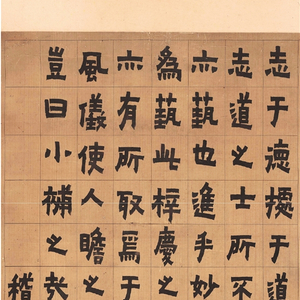 志于德據于道
志道之士所不
亦藝也進乎妙
為藝此梓慶之
亦有所取焉于
風儀使人瞻之
豈曰小補之哉
稽